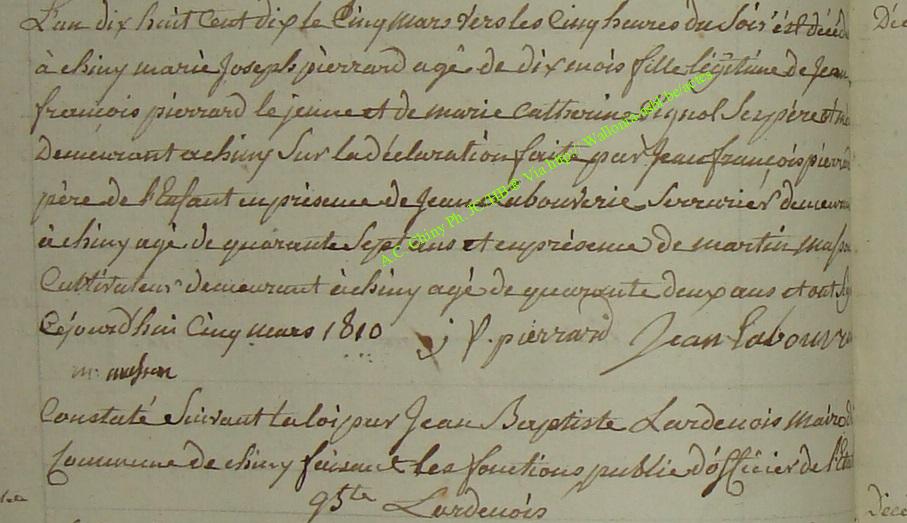 L'an dix huit Cent dix le Cinq mars vers les Cinq heures du Soir est décéd
à chiny marie Joseph pierrard agé de dix mois fille légitime de Jean
françois pierrard le jeune et de marie Catherine Ses père et
Demeurant a chiny Sur la déclaration faite par Jean françois pierrard
père de l'Enfant en présence de Jean Labouverie Serrurier demeurant
à chiny agé de quarante Sept ans et en présence de martin masson
Cultivateur demeurant à chiny agé de quarante deux ans et ont
Cejourd'hui Cinq mars 1810 j f. pierrard Jean Labouve
m: masson
Constaté Suivant la loi par Jean Baptiste Lardenois maire d
Commune de chiny faisant les fonctions public d'officier de l'Etat
Lardenois
A.C. Chiny Ph. JC.HB.® Via https:Wallonia.asbl.be/actes
Déc
Déce